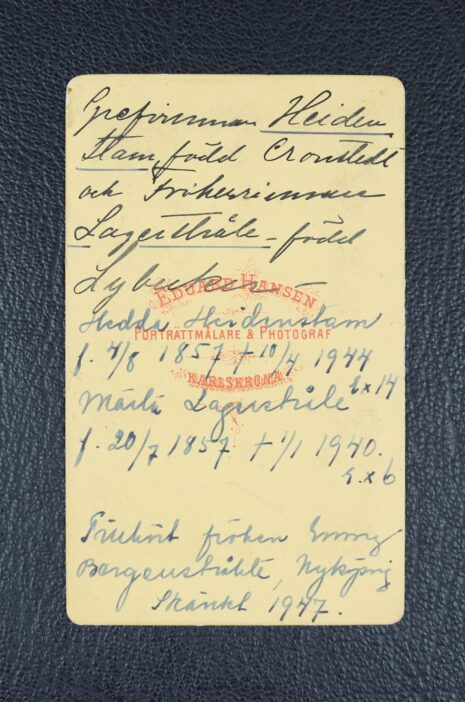 Grefvinnan Heiden
stam, född Cronstedt
och Friherrinnan
Lagerstråle - född
Lybecker
EDUARD HANSEN
Hedda Heidenstam
PORTRÄTTMÅLARE & PHOTOGRAF
f. 4/8 1857 + 10/4 1944
KARLSKRONA
Ex 14
Märta Lagerstråle
f. 20/7 1857 + 1/1 1940.
E. x 6
Tillhört fröken Emmy
Bergenstråhle, Nyköping
Skänkt 1947.